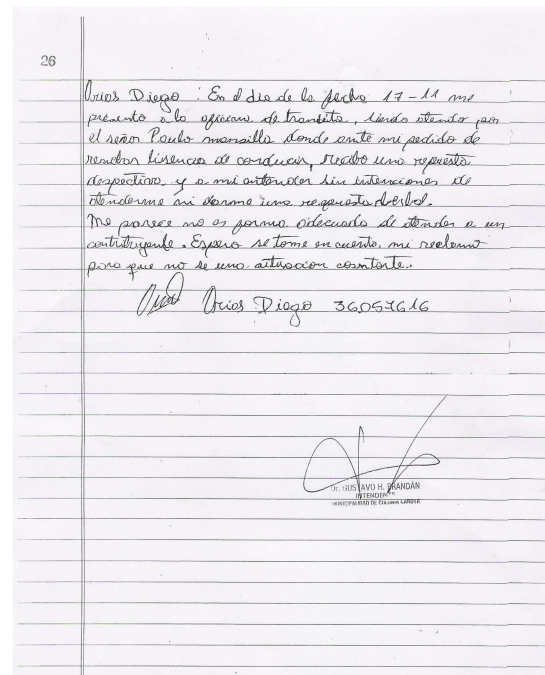 26
Arias Diego : En el dia de la fecha 17-11 me
presento a la oficina de transito, siendo atendo por
el señor Paulo mansilla donde ante mi pedido de
rendar lisencia de conducir, recibo una repuesta
despectiva y a mi entender sin intenciones de
atenderme ni darme una respuesta
Me parece no es forma adecuada de atender a un
contribuyente. Espero se tome en cuenta mi reclamo
para que no se una situacion constante.
Arias Diego 36057616
Dr. GUSTAVO H. BRANDÁN
INTENDENTE
MUNICIPALIDAD DE COLONIA